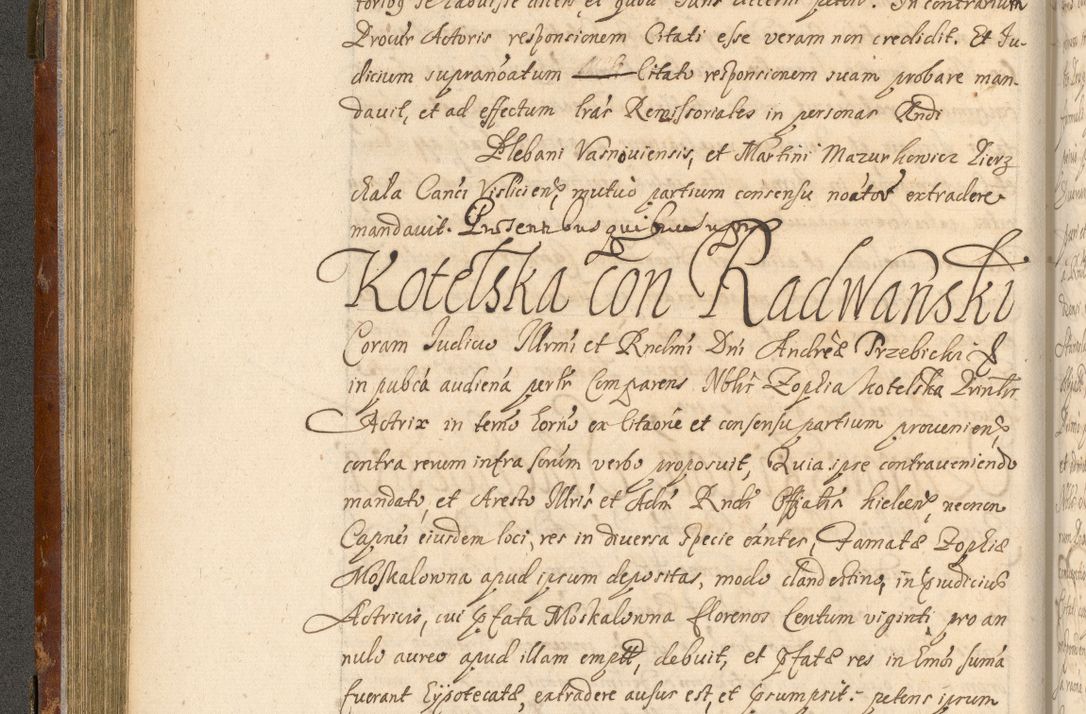 Procur Actoris responsionem Citati esse veram non credidit. Et Ju-
dicium supranoatum Citato responsionem suam probare man-
davit, et ad effectum lras Remissoriales in personas Andi
Plebani Vasniuiensis, et Martini Mazurkowicz Pierz
chała Canci Vislicien, mutuo partium consensu noatos extradere
mandavit. Pnsentibus quibus supra
Kotelska con Radwański
Coram Judicio Illrmi et Rndmi Dni Andreæ Trzebicki
in pubca audiena pertr Comparens Nblis Zophia Kotelska Printr
Actrix in termo horno ex Citaone et consensu partium provenien
contra reum infra scrum verbo proposuit, Quia ipse contraveniendo
mandato, et Aresto Illris et Adm Rndi Offalis Kielcen, necnon
Capnei eiusdem loci, res in diversa specie exantes, Famatæ Zophiæ
Moskalowna apud ipsum depositas, modo clandestino, in pjudicius
Actricis, cui pfata Moskalowna florenos Centum viginti pro an
nulo aureo apud illam empto, debuit, et pfatæ res in Emoi suma
fuerant Eypotecatæ, extradere ausus est, et psumpsit. petens ipsum